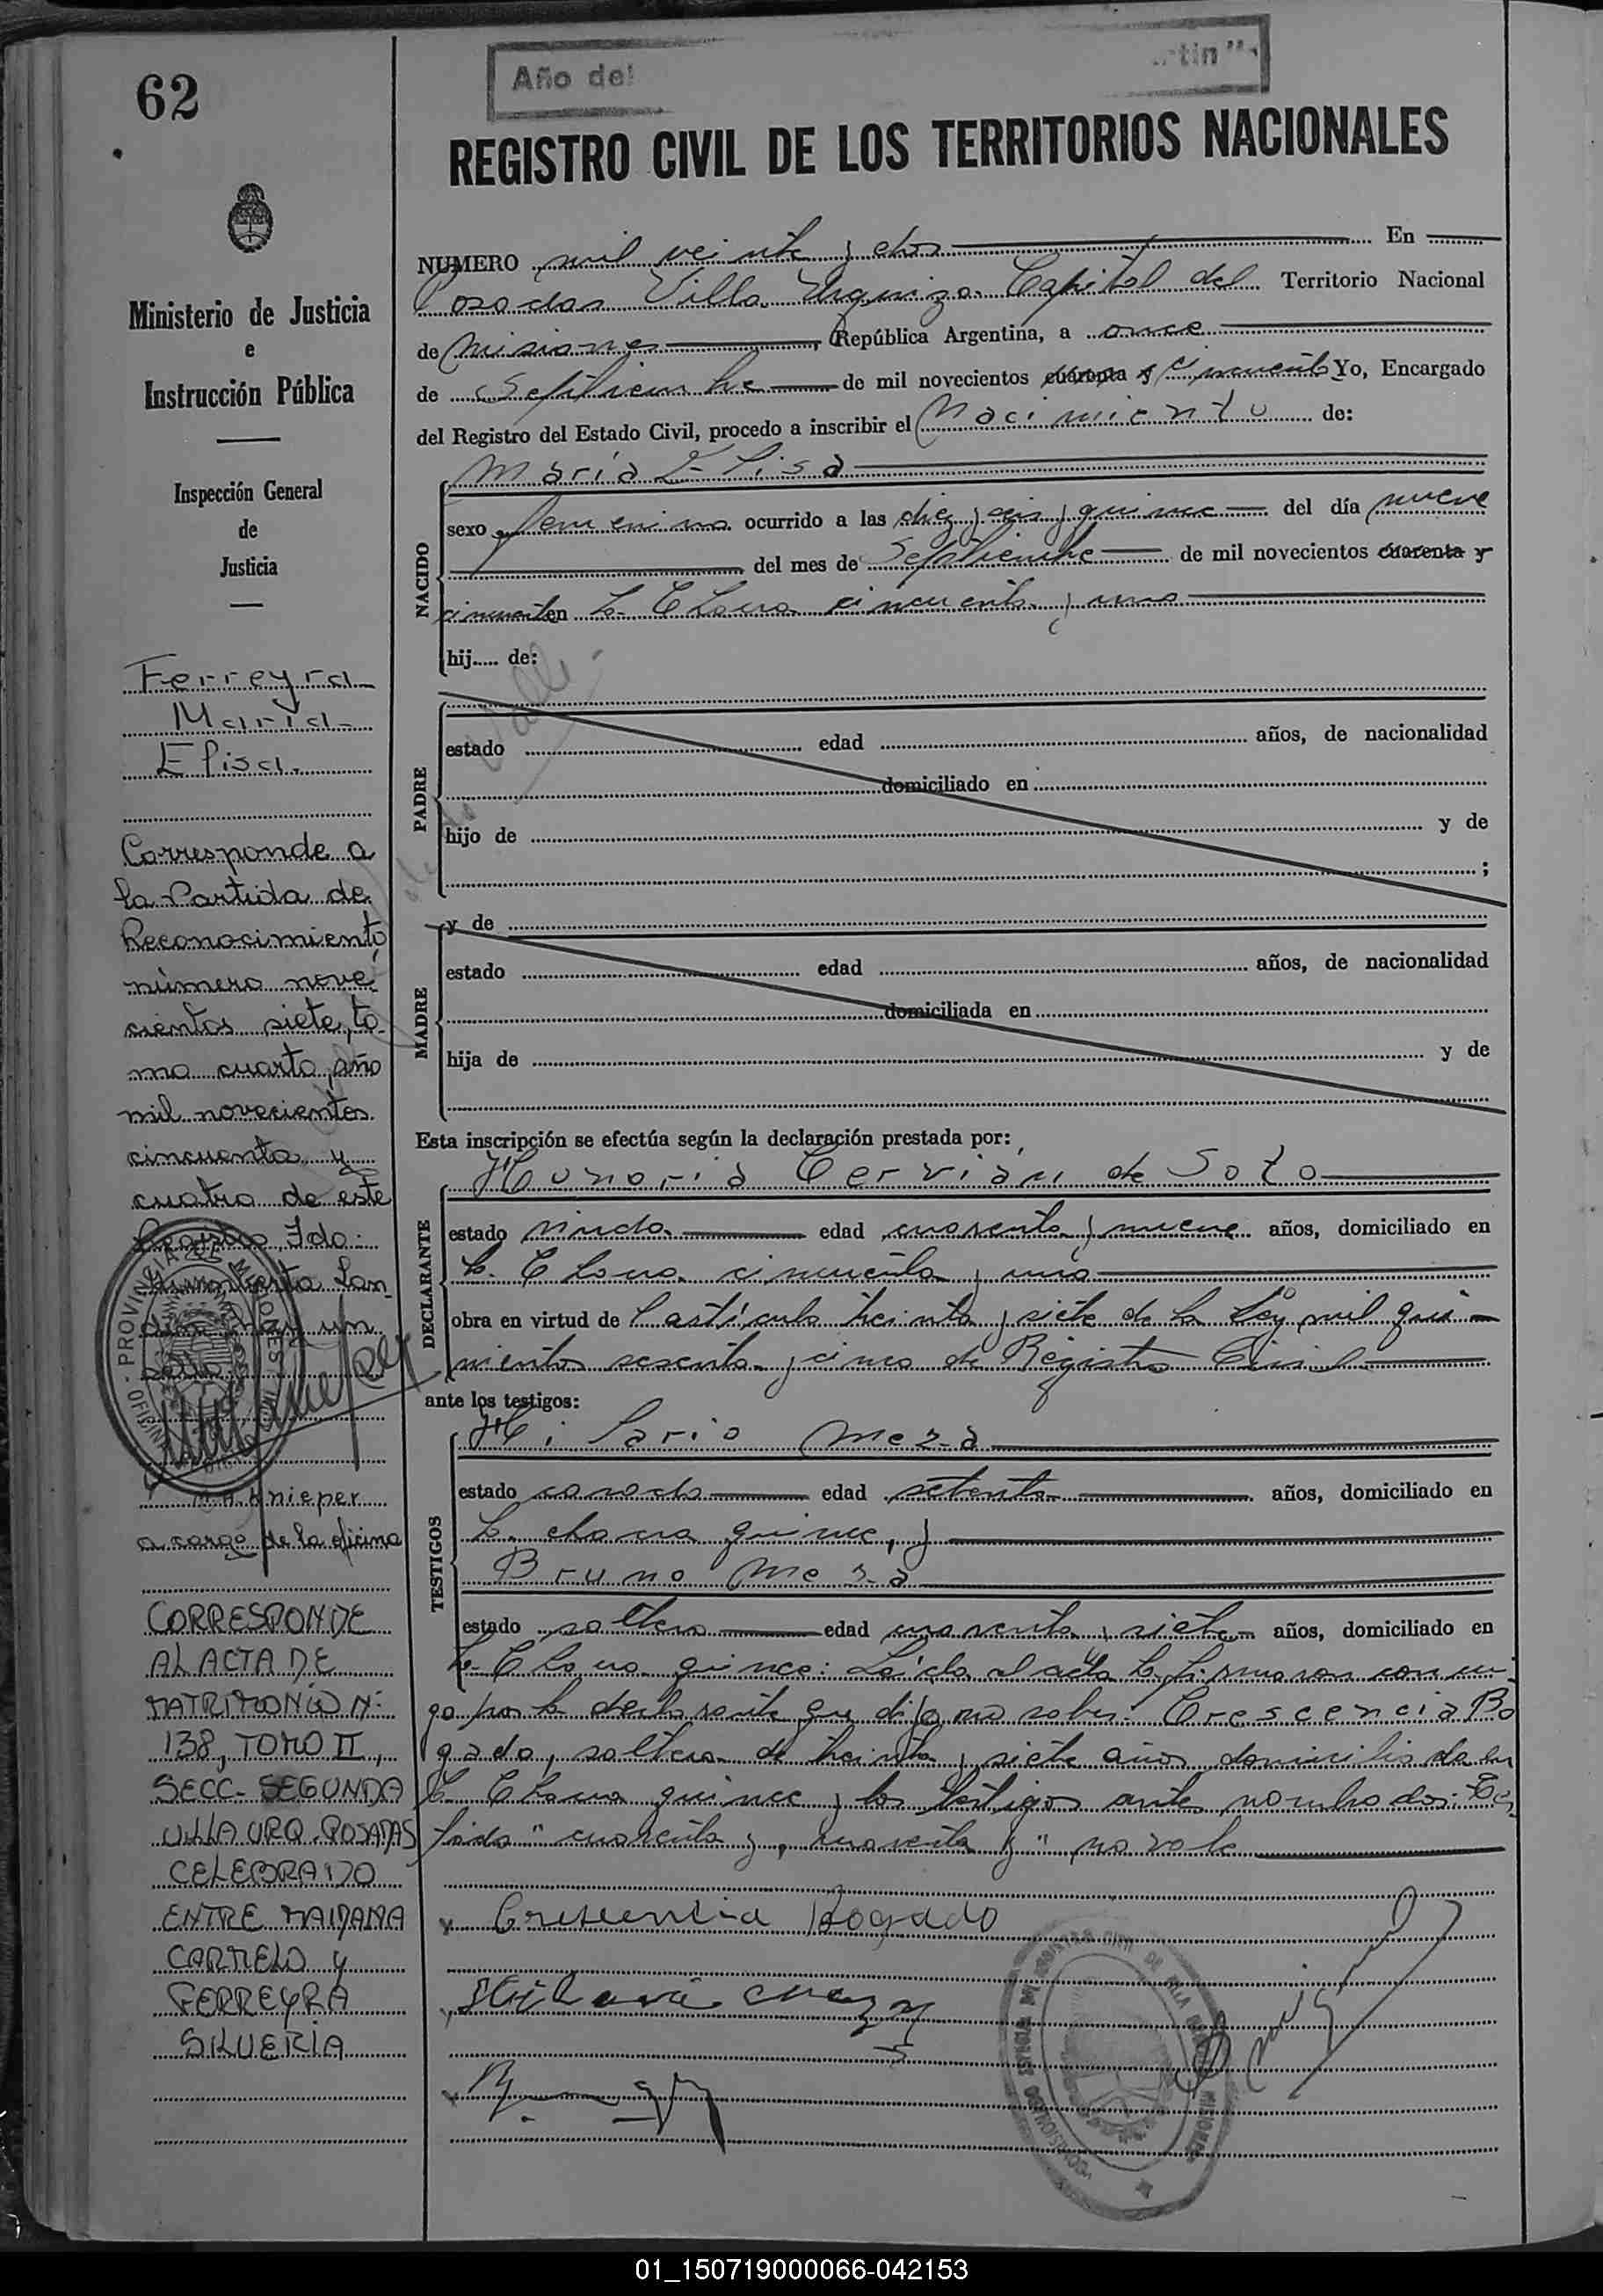 62
Año del
REGISTRO CIVIL DE LOS TERRITORIOS NACIONALES
Ministerio de Justicia
e
Instrucción Pública
Inspección General
de
Justicia
Ferreyra
Maria
Elisa.
Corresponde a
la Partida de
Reconocimiento
número nove-
cientos siete, to-
mo cuarto, año
mil novecientos
cincuenta y
cuatro de este
Fdo:
Humberto Lan-
un
sello
M. A. Knieper
a cargo de la oficina
CORRESPONDE
AL ACTA DE
MATRIMONIO Nº
138, TOMO II,
SECC. SEGUNDA
VILLA URQ. POSADAS
CELEBRADO
ENTRE MAIDANA
CARMELO y
FERREYRA
SILVERIA
NUMERO mil veinte y dos En
Posadas Villa Urquiza Capital del Territorio Nacional
de Misiones, República Argentina, a once
de Septiembre de mil novecientos cuarenta y cincuenta Yo, Encargado
del Registro del Estado Civil, procedo a inscribir el Nacimiento de:
NACIDO
María Elisa
sexo femenino ocurrido a las diez y seis y quince del día nueve
del mes de Septiembre de mil novecientos cuarenta y
cincuenta en la Chacra cincuenta y una
hij..... de:
PADRE
estado edad años, de nacionalidad
domiciliado en
hijo de y de
;
MADRE
y de
estado edad años, de nacionalidad
domiciliada en
hija de y de
Esta inscripción se efectúa según la declaración prestada por:
DECLARANTE
Honoria Cervian de Soto
estado viuda edad cuarenta y nueve años, domiciliado en
la Chacra cincuenta y una
obra en virtud de l artículo treinta y siete de la Ley mil qui-
nientos sesenta y cinco de Registro Civil
ante los testigos:
TESTIGOS
Hilario Meza
estado casado edad setenta años, domiciliado en
la chacra quince, y
Bruno Meza
estado soltero edad cuarenta y siete años, domiciliado en
la Chacra quince: Leída el acta la firmaron conmi-
go por la declarante que dijo no saber: Crescencia Bo
gado, soltera de treinta y siete años domiciliada en
la Chacra quince y los testigos ante nombrados: Tes-
tado "cuarenta y, cuarenta y" no vale
Crescencia Bogado
Hilario Meza
01_150719000066-042153